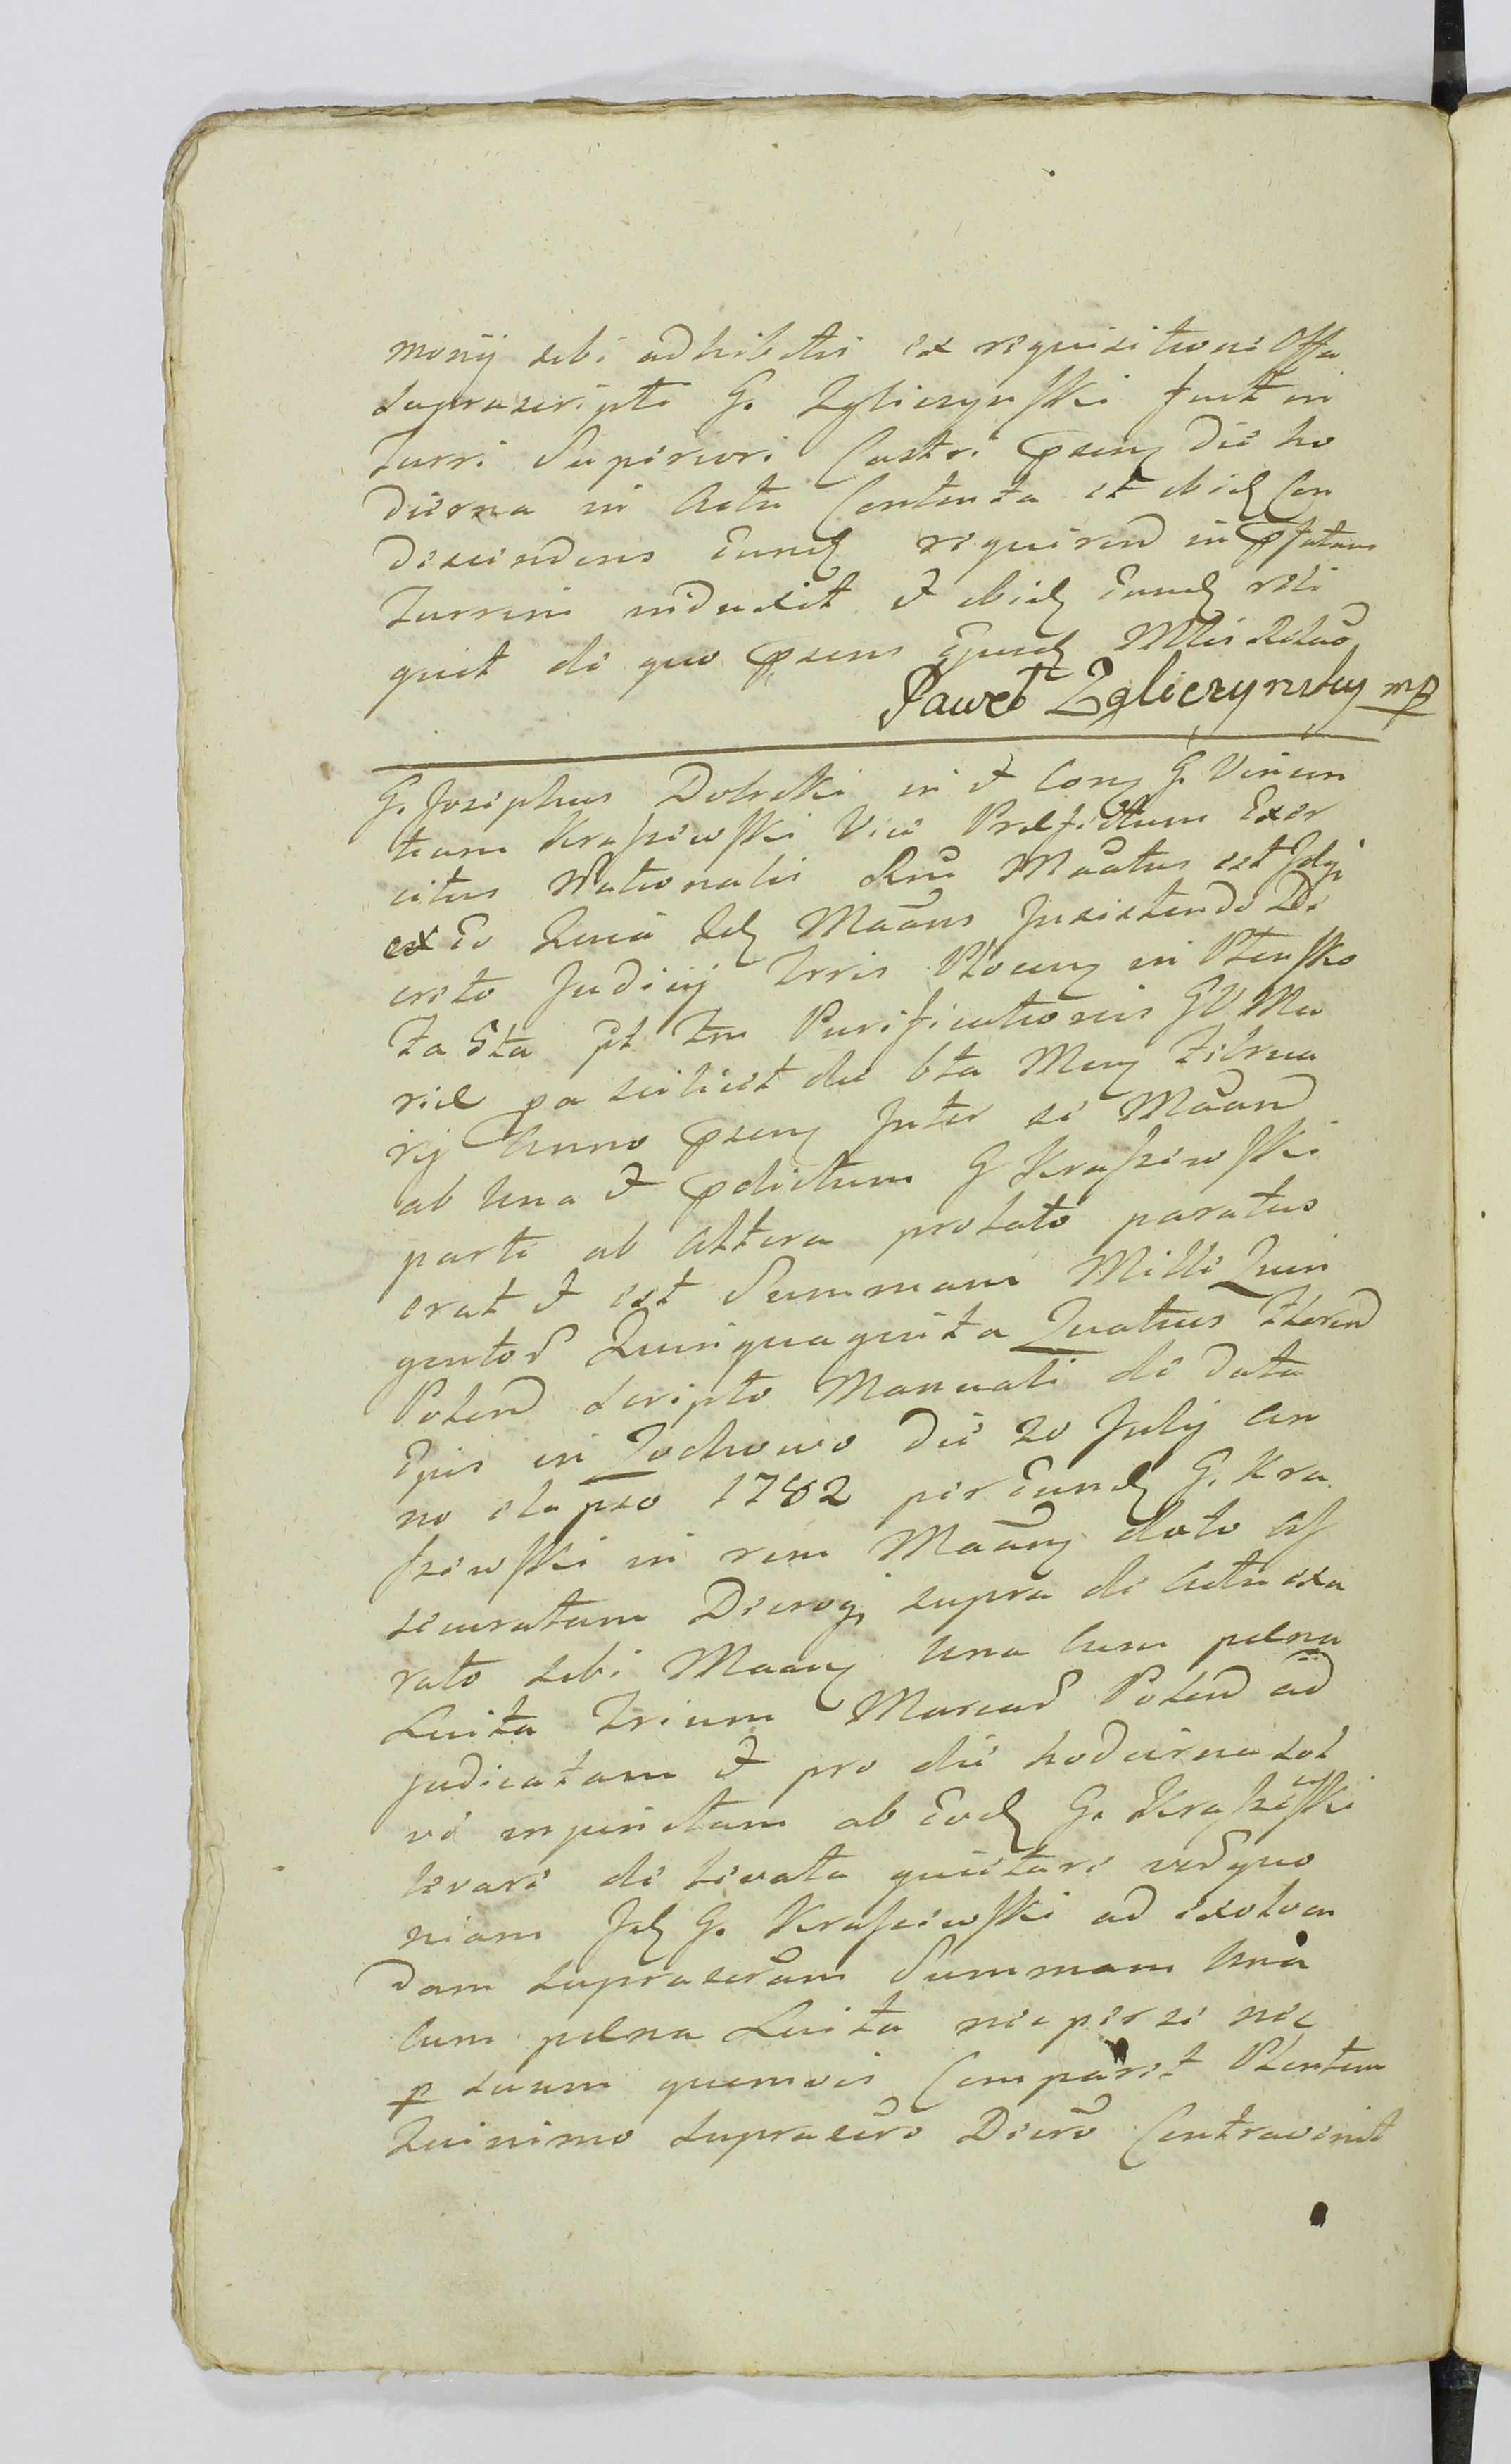 monij sibi adhibitis ex requisitione Offii
suprascripti G. Zgliczynski fuit in
Turri Superiori Castri psens die ho
dierna in Actu Contenta et ibid Con
descendens Eund requirend in pfatam
Turrim induxit et ibid Eund reli
quit de quo psens Ejusd Mtis Relatio
Paweł Zgliczynsky mp
G. Josephus Dobrski in et Con G. Vincen
tium Kraszewski Vice Prefectum Exer
citus Nationalis Regni Maatus est Idq
ex Eo Quia Id Maans Insistendo De
creto Judicij Trris Plocen in Plensko
Fa 5ta pt Fm Purificationis BVMa
riæ pa scilicet die 6ta Men Februa
rij Anno psen Inter se Maand
ab una et pdictum G Kraszewski
parte ab altera prolato paratus
erat et est Summam Mille Quin
gentor Quinquaginta Quatuor Floren
Polon scripto Manuali de data
Ejus in Zochowo die 20 Julij An
no elapso 1782 per Eund G. Kra
szewski in rem Maan dato as
securatam Decroq supra de Actu exa
rato sibi Maan una cum pæna
Luita Trium Marcar Polon ad
judicatam et pro die hodierna sol
vi injunctam ab Eod G. Kraszewski
levare de levata quietare verum quo
niam Id G. Kraszewski ad exolven
dam suprascram Summam una
cum pæna Luita nec per se nec
p suum quemvis Comparet Plentem
Quinimo suprascro Decro Contravenit